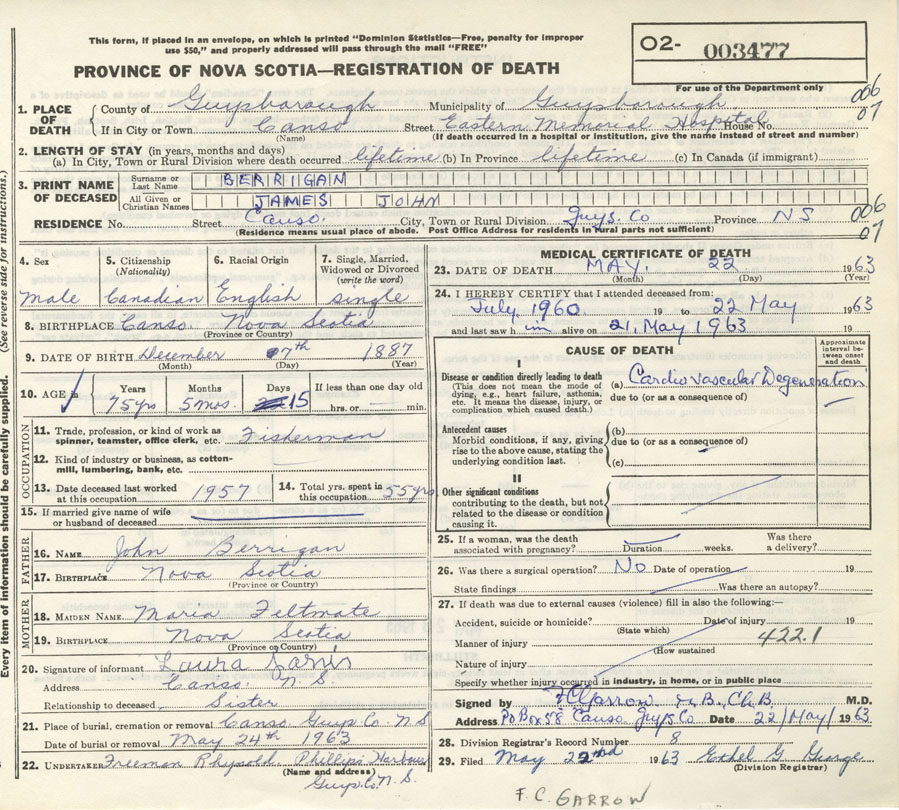 This form, if placed in an envelope, on which is printed "Dominion Statistics—Free, penalty for improper
use $50," and properly addressed will pass through the mail "FREE"
PROVINCE OF NOVA SCOTIA—REGISTRATION OF DEATH
02- 003477
For use of the Department only
006
07
1. PLACE OF DEATH
County of Guysborough Municipality of Guysborough
If in City or Town Canso Street Eastern Memorial Hospital House No.
(Name) (If death occurred in a hospital or institution, give the name instead of street and number)
2. LENGTH OF STAY (in years, months and days)
(a) In City, Town or Rural Division where death occurred lifetime (b) In Province lifetime (c) In Canada (if immigrant)
3. PRINT NAME OF DECEASED
Surname or Last Name BERRIGAN
All Given or Christian Names JAMES JOHN
006
07
RESIDENCE No. Street Canso. City, Town or Rural Division Guys. Co Province NS
(Residence means usual place of abode. Post Office Address for residents in rural parts not sufficient)
4. Sex
male
5. Citizenship (Nationality)
Canadian
6. Racial Origin
English
7. Single, Married, Widowed or Divorced (write the word)
single
8. BIRTHPLACE Canso. Nova Scotia
(Province or Country)
9. DATE OF BIRTH December 7th 1887
(Month) (Day) (Year)
10. AGE Years Months Days If less than one day old
75yrs 5mos. 15 hrs. or min.
OCCUPATION
11. Trade, profession, or kind of work as spinner, teamster, office clerk, etc. Fisherman
12. Kind of industry or business, as cotton-mill, lumbering, bank, etc.
13. Date deceased last worked at this occupation 1957
14. Total yrs. spent in this occupation 55yrs
15. If married give name of wife or husband of deceased
FATHER
16. NAME John Berrigan
17. BIRTHPLACE Nova Scotia
(Province or Country)
MOTHER
18. MAIDEN NAME Maria Feltmate
19. BIRTHPLACE Nova Scotia
(Province or Country)
20. Signature of informant Laura
Address Canso. N.S.
Relationship to deceased Sister
21. Place of burial, cremation or removal Canso Guys Co. N.S
Date of burial or removal May 24th 1963
22. UNDERTAKER Freeman Phillips Harbour
(Name and address) Guys.Co.N.S.
MEDICAL CERTIFICATE OF DEATH
23. DATE OF DEATH MAY. 22 1963
(Month) (Day) (Year)
24. I HEREBY CERTIFY that I attended deceased from:
July, 1960. 19 to 22 May 1963
and last saw h im alive on 21, May 1963 19
CAUSE OF DEATH
Approximate interval between onset and death
I
Disease or condition directly leading to death
(This does not mean the mode of dying, e.g., heart failure, asthenia, etc. It means the disease, injury, or complication which caused death.)
(a) Cardiovascular Degeneration
due to (or as a consequence of)
Antecedent causes
Morbid conditions, if any, giving rise to the above cause, stating the underlying condition last.
(b)
due to (or as a consequence of)
(c)
II
Other significant conditions
contributing to the death, but not related to the disease or condition causing it.
25. If a woman, was the death associated with pregnancy? Duration weeks. Was there a delivery?
26. Was there a surgical operation? No Date of operation 19
State findings Was there an autopsy?
27. If death was due to external causes (violence) fill in also the following:—
Accident, suicide or homicide? Date of injury 19
(State which)
Manner of injury 422.1
(How sustained
Nature of injury
Specify whether injury occurred in industry, in home, or in public place
Signed by F C Garrow M.B., Ch.B. M.D.
Address PO Box 58 Canso, Guys Co Date 22/May/1963
28. Division Registrar's Record Number 8
29. Filed May 22nd 1963 Ethel G George
(Division Registrar)
F. C. GARROW
Every item of information should be carefully supplied. (See reverse side for instructions.)